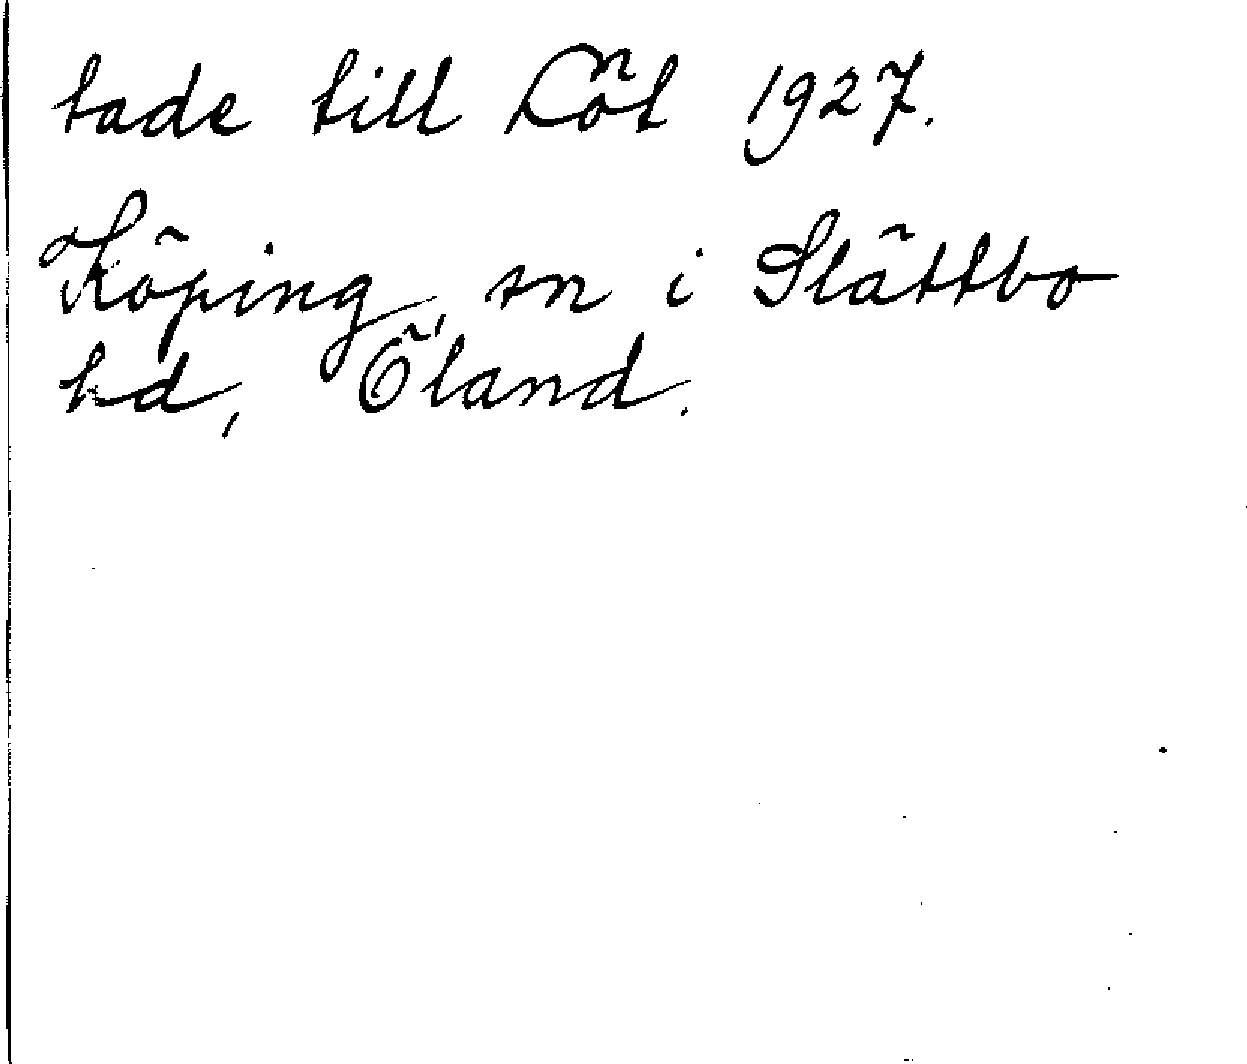 tade till Löt 1927.
Köping, sn i Slättbo
hd, Öland.